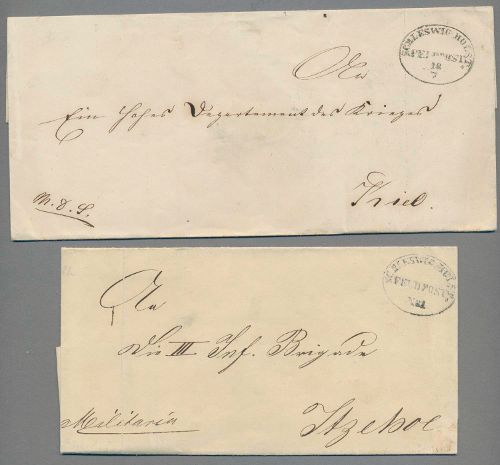 SCHLESWIG HOLST.
FELDPOST.
18
7
An
Ein Hohes Departement des Krieges
M. d. S.
Kiel.
SCHLESWIG HOLST.
FELDPOST
An
Die III Inf. Brigade
Militaria
Itzehoe